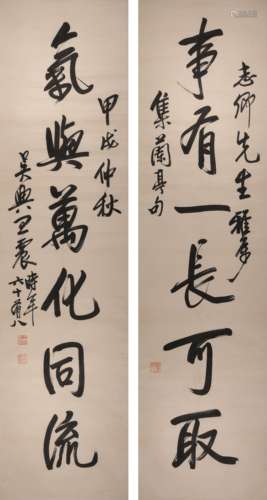 事有一長可取
志卿先生雅屬
集蘭亭句
氣與萬化同流
甲戌仲秋
吳興王震時年
六十有八